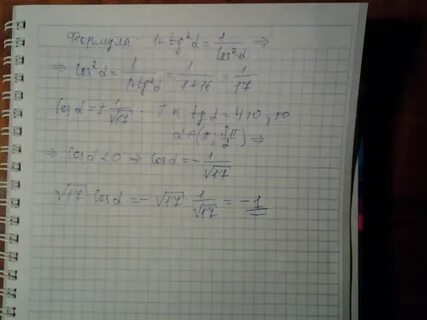 Формула 1+tg²α = 1/cos²α ⇒
⇒ cos²α = 1/1+tg²α = 1/1+16 = 1/17
cosα = ± 1/√17. Т к tgα = 4>0, то
α ∈ (π; 3π/2) ⇒
⇒ cosα<0 ⇒ cosα = - 1/√17
√17·cosα = - √17 · 1/√17 = -1